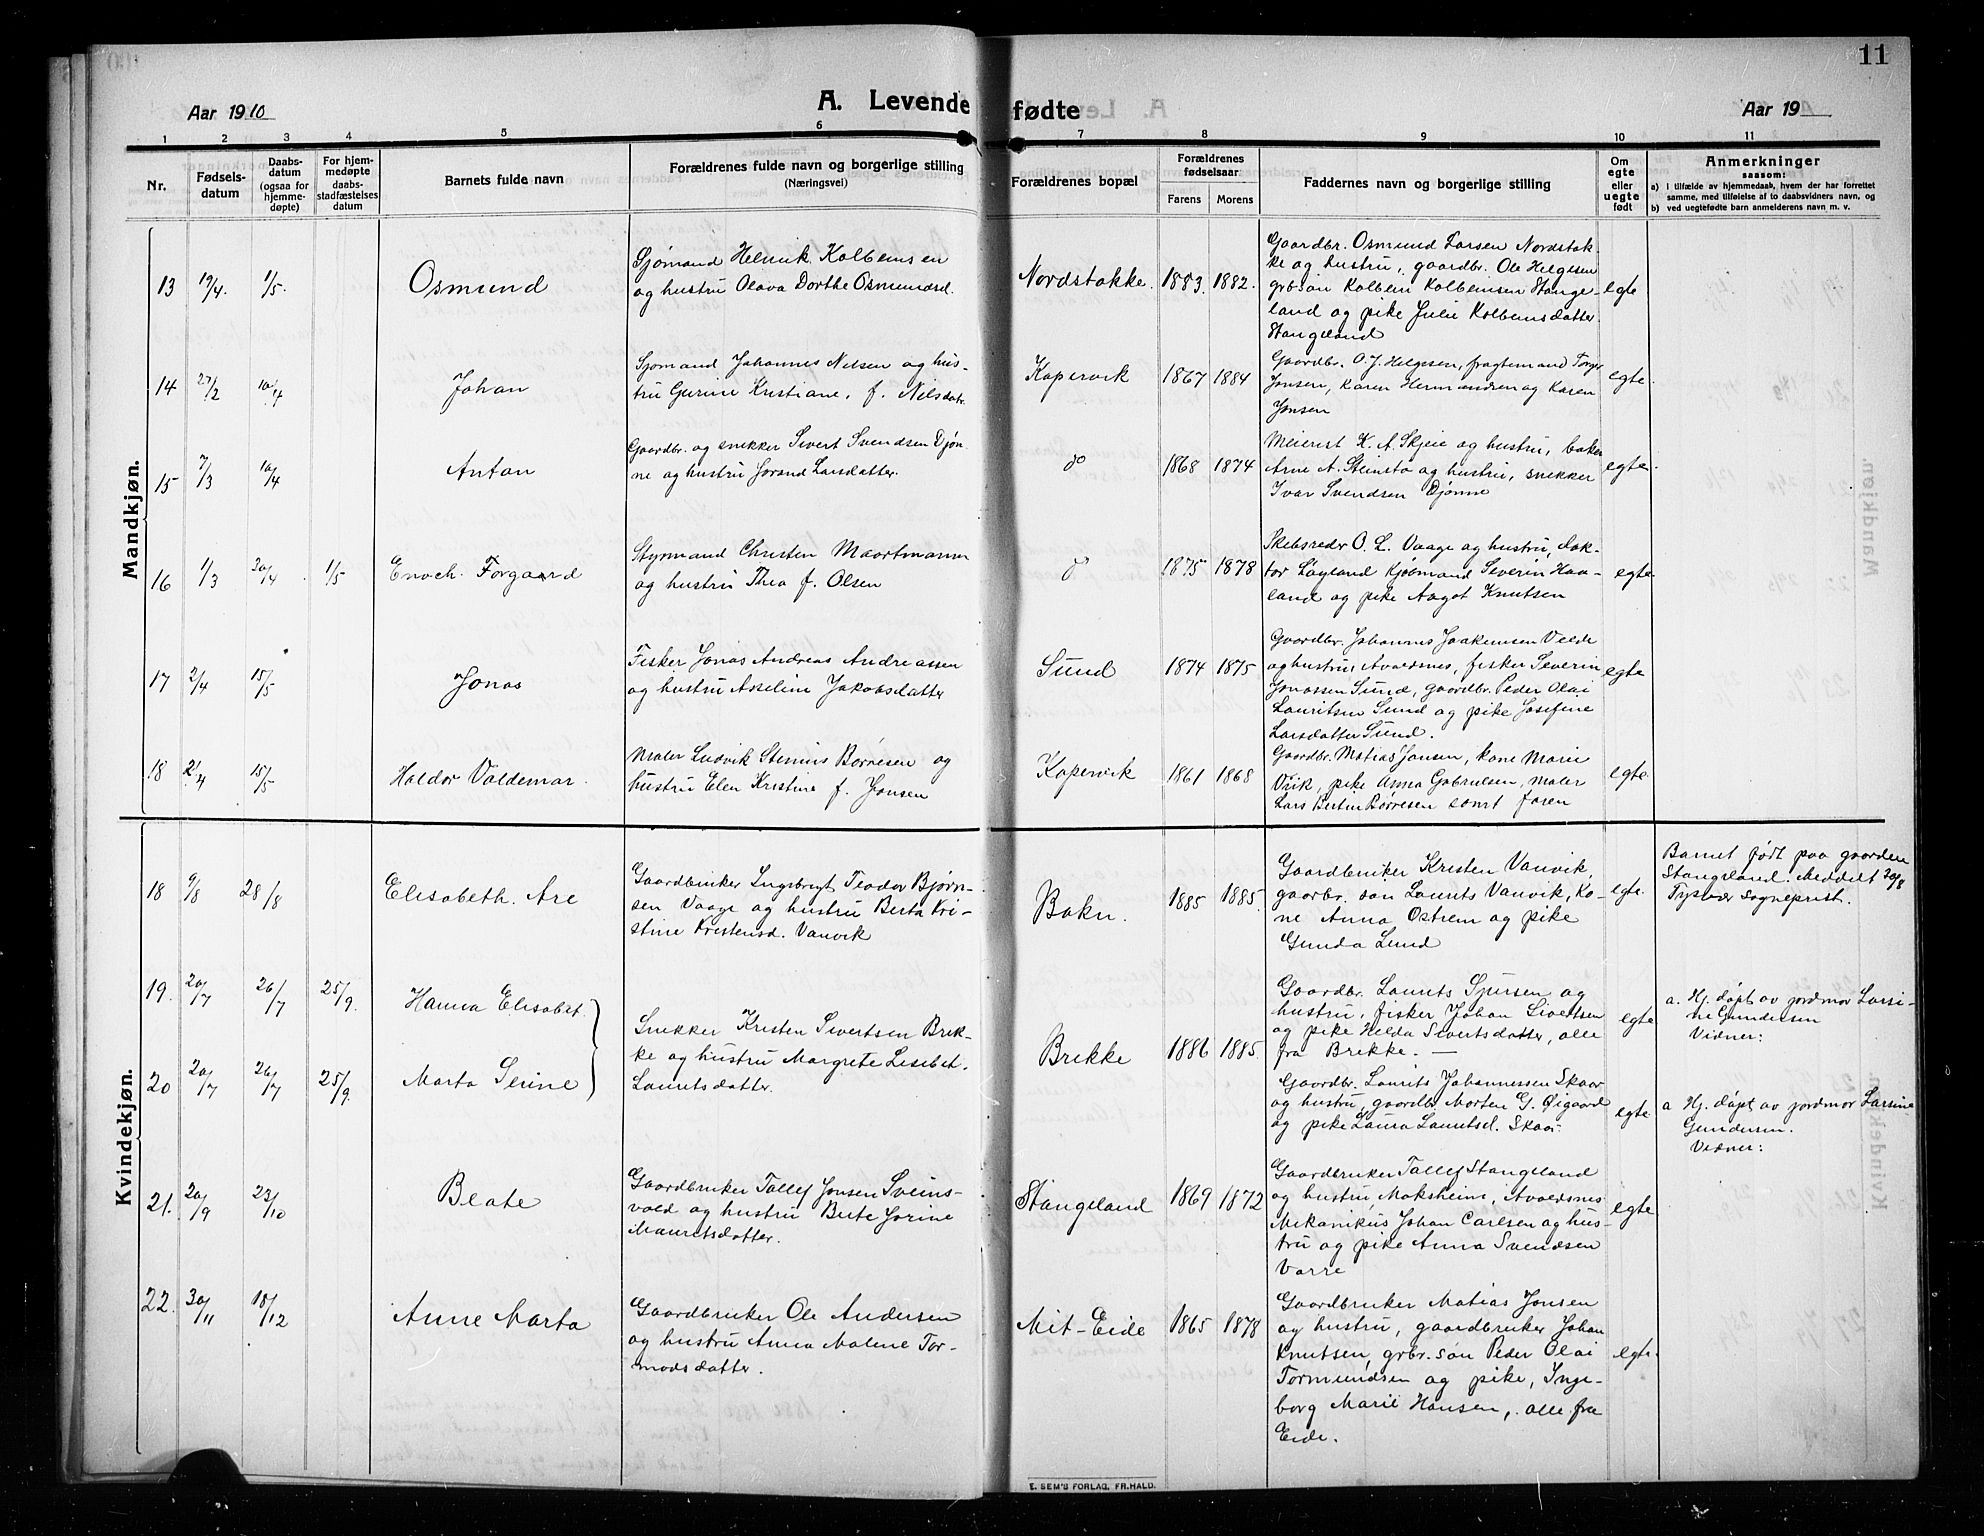 11
Aar 1910
A. Levende fødte
Aar 19
1 2 3 4 5 6 7 8 9 10 11
Nr.
Fødsels-
datum
Daabs-
datum
(ogsaa for
hjemme-
døpte)
For hjem-
medøpte
daabs-
stadfæstelses
datum
Barnets fulde navn
Forældrenes fulde navn og borgerlige stilling
(Næringsvei)
Forældrenes bopæl
Forældrenes
fødselsaar
Farens Morens
Faddernes navn og borgerlige stilling
Om
egte
eller
uegte
født
Anmerkninger
saasom:
a) i tilfælde av hjemmedaab, hvem der har forrettet
samme, med tilføielse af to daabsvidners navn, og
b) ved uegtefødte barn anmelderens navn m. v.
Mandkjøn.
13 19/4. 1/5. Osmund
Sjømand Helmik Kolbeinsen
og hustru Olava Dorthe Osmundsd.
Nordstokke. 1883. 1882.
Gaardbr. Osmund Larsen Nordstok-
ke og hustru, gaardbr. Ole Helgesen
grb.søn Kolbein Kolbeinsen Stange-
land og pike Julie Kolbeinsdatter
Stangeland
egte
14 27/2 10/4 Johan
Sjømand Johannes Nilsen og hus-
tru Gurine Kristiane, f. Nilsdatr.
Kopervik 1867 1884
Gaardbr. O. J. Helgesen, fragtemand Torger
Jonsen, Karen Hermundsen og Karen
Jonsen
egte.
15 7/3 10/4 Anton
Gaardbr. og snekker Sivert Svendsen Djøn-
ne og hustru Jorand Larsdatter.
do 1868 1874
Meierist K. A. Skjeie og hustru, baker
Arne A. Steinstø og hustru, snekker
Ivar Svendsen Djønne
egte.
16 1/3 30/4 1/5 Enoch. Forgaard
Styrmand Christen Maartmann
og hustru Thea f. Olsen
do 1875 1878
Skibsreder O. L. Vaage og hustru, dok-
tor Løyland Kjøbmand Severin Haa-
land og pike Aagot Knutsen
egte.
17 2/4 15/5 Jonas
Fisker Jonas Andreas Andreassen
og hustru Asseline Jakobsdatter
Sund 1874 1875
Gaardbr. Johannes Joakimsen Velde
og hustru Avaldsnes, fisker Severin
Jonassen Sund, gaardbr. Peder Olai
Lauritsen Sund og pike Josefine
Larsdatter Sund.
egte
18 21/4 15/5 Haldor Valdemar.
Maler Ludvik Stenius Børresen og
hustru Elen Kristine f. Jonsen
Kopervik 1861 1868
Gaardbr. Matias Jansen, kone Marie
Vik, pike Anna Gabrielsen, maler
Lars Bertin Børresen samt faren
egte.
Kvindekjøn.
18 9/8 28/8 Elisabeth. Are
Gaardbruker Ingebrigt Teodor Bjørn-
sen Vaage og hustru Berta Kri-
stine Kristensd. Vanvik
Bokn. 1885 1885.
Gaardbruker Kristen Vanvik,
gaardbr. søn Laurits Vanvik, Ko-
ne Anna Ostrem og pike
Gunda Lund
egte.
Barnet født paa gaarden
Stangeland. Meddelt 20/8
Tysvær Sogneprest.
19. 20/7 26/7 25/9. Hanna Elisabet.
20 20/7 26/7 25/9. Marta Serine
Snekker Kristen Sivertsen Brek-
ke og hustru Margrete Lisebet.
Lauritsdatter.
Brekke 1886 1885.
Gaardbr. Laurits Sjursen og
hustru, fisker Johan Sivertsen
og pike Helda Sivertsdatter, alle
fra Brekke. —
egte
a. Hj. døpt av jordmor Larsi-
ne Gundersen
Vidner:
Gaardbr. Laurits Johannessen Skaar
og hustru, gaardbr. Morten G. Øigaard
og pike Laura Lauritsd. Skaar
egte
a Hj. døpt av jordmor Larsine
Gundersen.
Vidner:
21. 20/9 23/10 Beate
Gaardbruker Tollef Jonsen Sveins-
vold og hustru Berte Jorine
Mauritsdatter.
Stangeland 1869 1872
Gaardbruker Tollef Stangeland
og hustru Moksheim, Avaldsnes
Mekanikus Johan Carlsen og hus-
tru og pike Anna Svendsen
Varre
egte
22. 30/11 18/12 Anne Marta
Gaardbruker Ole Andersen
og hustru Anna Malene Tor-
modsdatter.
Mit-Eide 1865 1878
Gaardbruker Matias Jonsen
og hustru, gaardbruker Johan
Knutsen, grbr. søn Peder Olai
Tormundsen og pike, Inge-
borg Marie Hansen, alle fra
Eide.
egte.
E. SEM'S FORLAG, FR.HALD.